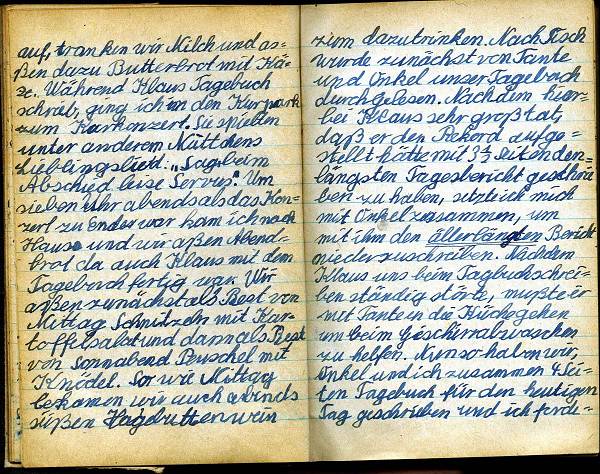 auf, tranken wir Milch und as-
ßen dazu Butterbrot mit Kä-
se. Während Klaus Tagebuch
schrieb, ging ich in den Kurpark
zum Kurkonzert. Sie spielten
unter anderem Muttchens
Lieblingslied: „Sag beim
Abschied leise Servus". Um
sieben Uhr abends als das Kon-
zert zu Ende war kam ich nach
Hause und wir aßen Abend-
brot da auch Klaus mit dem
Tagebuch fertig war. Wir
aßen zunächst als Rest von
Mittag Schnitzeln mit Kar-
toffelsalat und dann als Rest
von Sonnabend Peuschel mit
Knödel. So wie Mittag
bekamen wir auch abends
süßen Hagebuttenwein
zum dazutrinken. Nach Tisch
wurde zunächst von Tante
und Onkel unser Tagebuch
durchgelesen. Nachdem hier-
bei Klaus sehr groß tat,
daß er den Rekord aufge-
stellt hätte mit 3½ Seiten den
längsten Tagesbericht geschrie
ben zu haben, setzte ich mich
mit Onkel zusammen, um
mit ihm den allerlängsten Bericht
niederzuschreiben. Nachdem
Klaus uns beim Tagbuchschrei-
ben ständig störte, mußte er
mit Tante in die Küche gehen
um beim Geschirrabwaschen
zu helfen. Nun so haben wir,
Onkel und ich zusammen 4 Sei-
ten Tagebuch für den heutigen
Tag geschrieben und ich forde-